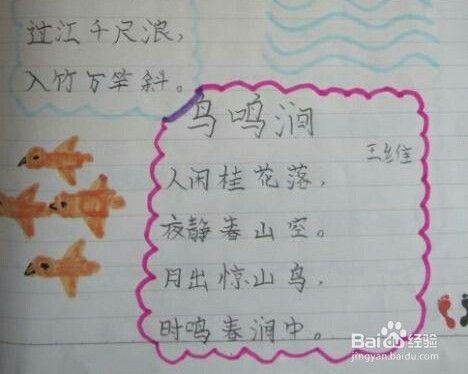 过江千尺浪，
入竹万竿斜。
鸟鸣涧
王维
人闲桂花落，
夜静春山空。
月出惊山鸟，
时鸣春涧中。
Baidu经验
jingyan.baidu.com